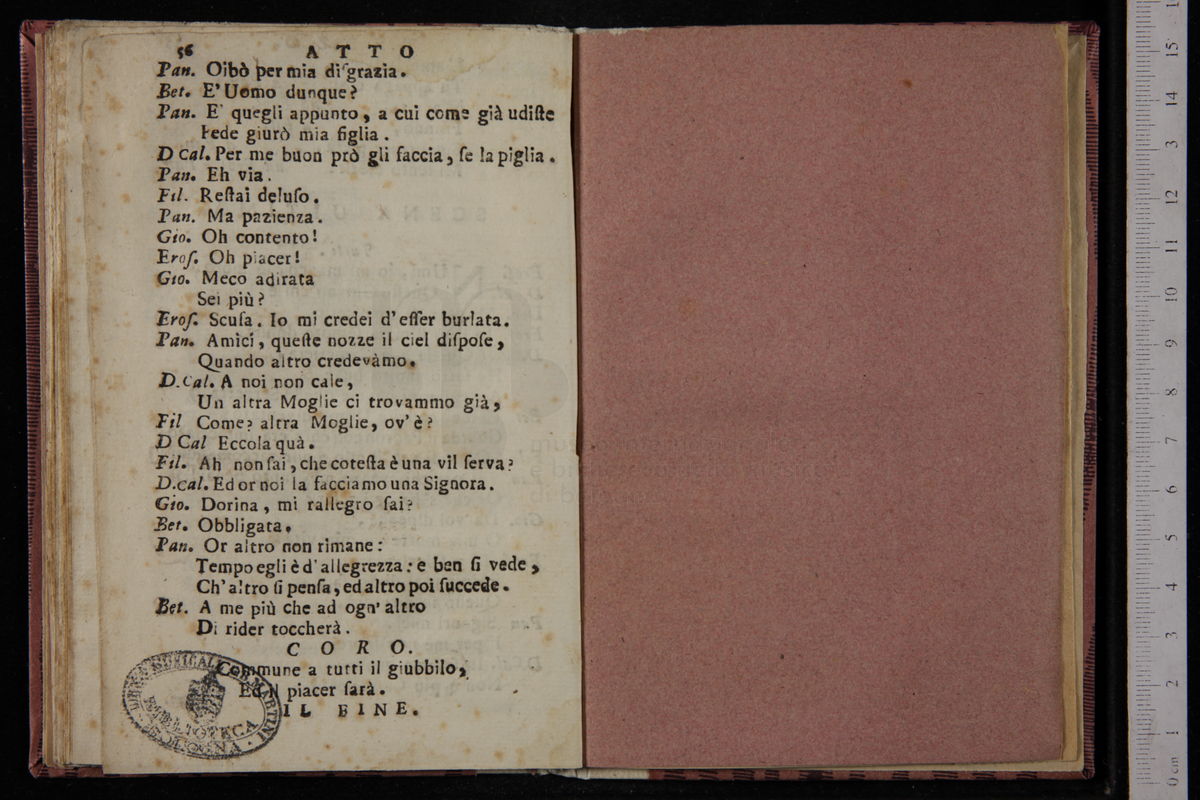 56 ATTO
Pan. Oibò per mia diſgrazia.
Bet. E' Uomo dunque?
Pan. E' quegli appunto, a cui come già udiſte
Fede giurò mia figlia.
D Cal. Per me buon prò gli faccia, ſe la piglia.
Pan. Eh via.
Fil. Reſtai deluſo.
Pan. Ma pazienza.
Gio. Oh contento!
Eroſ. Oh piacer!
Gio. Meco adirata
Sei più?
Eroſ. Scuſa. Io mi credei d'eſſer burlata.
Pan. Amici, queſte nozze il ciel diſpoſe,
Quando altro credevàmo.
D.Cal. A noi non cale,
Un altra Moglie ci trovammo già,
Fil Come? altra Moglie, ov'è?
D Cal Eccola quà.
Fil. Ah non ſai, che coteſta è una vil ſerva?
D.cal. Ed or noi la facciamo una Signora.
Gio. Dorina, mi rallegro ſai?
Bet. Obbligata.
Pan. Or altro non rimane:
Tempo egli è d'allegrezza: e ben ſi vede,
Ch'altro ſi penſa, ed altro poi ſuccede.
Bet. A me più che ad ogn'altro
Di rider toccherà.
CORO.
Commune a tutti il giubbilo,
Ed il piacer ſarà.
IL FINE.
LICEO MUSICALE G.B. MARTINI
BIBLIOTECA
BOLOGNA
0 cm 1 2 3 4 5 6 7 8 9 10 11 12 13 14 15